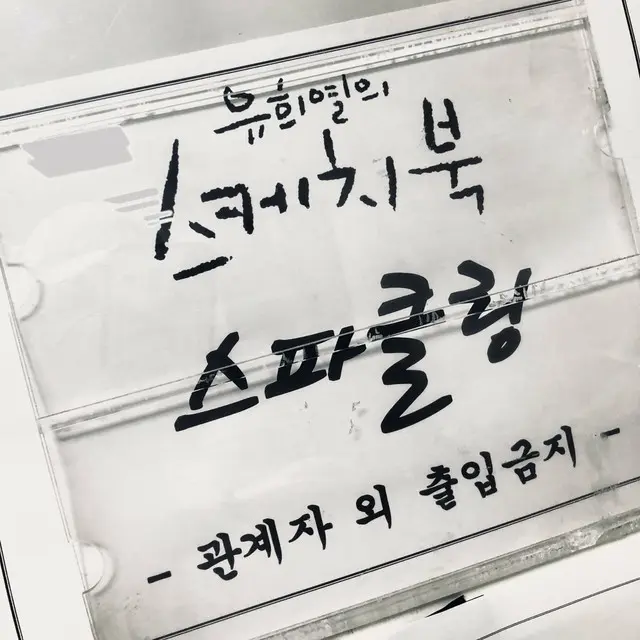 유희열의
스케치북
스파클링
- 관계자 외 출입금지 -